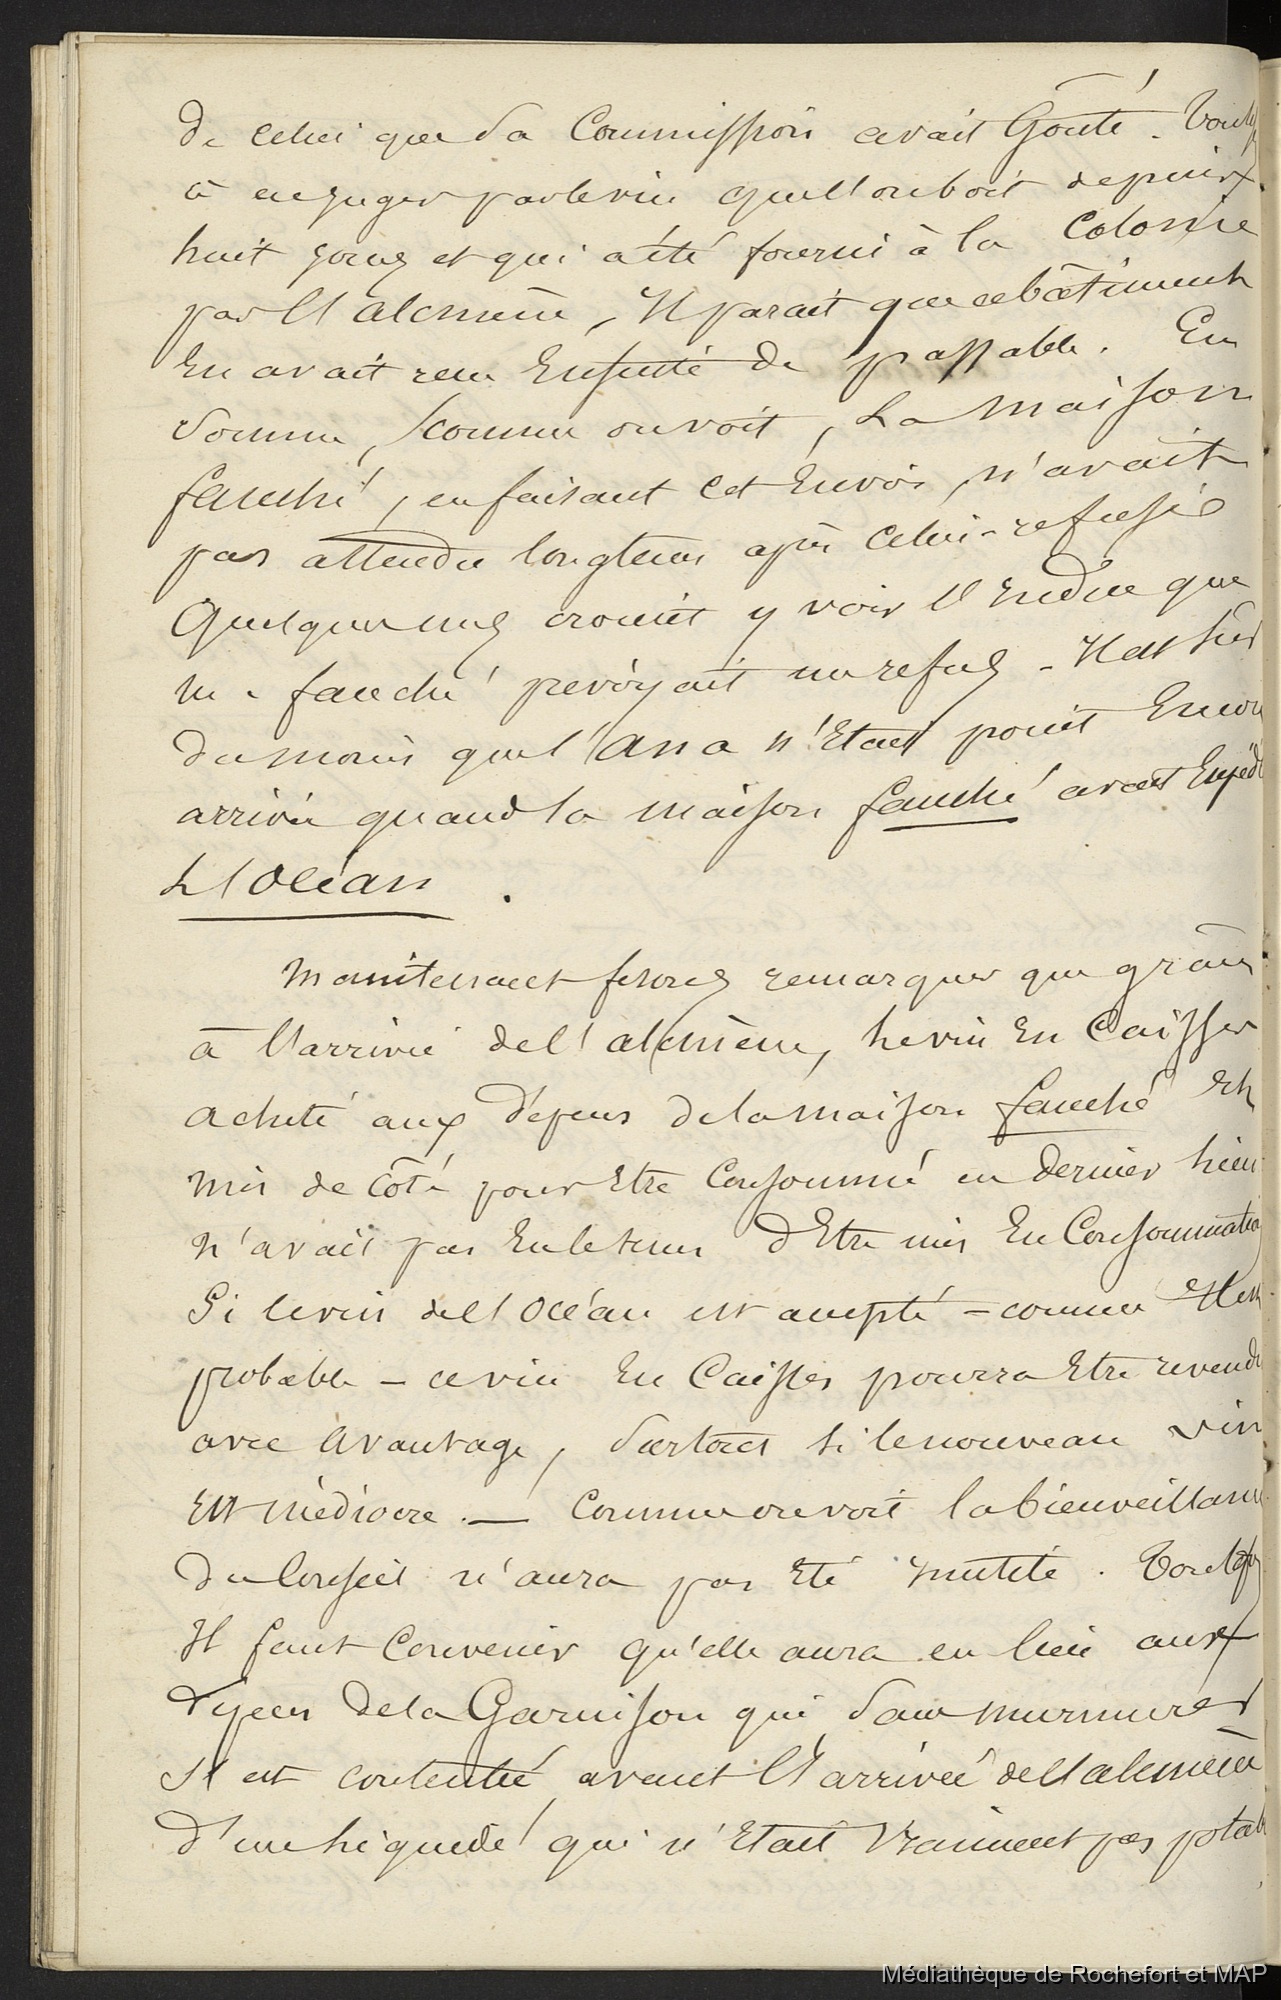 de celui que la Commission avait Gouté. Toutef
à en juger par le vin que l'on boit depuis
huit jours et qui a été fourni à la Colonie
par l'Alcmène, Il parait que ce bâtiment
En avait reçu Ensuite de passable. En
somme, comme on voit, La Maison
fauché, en faisant cet Envoi, n'avait
pas attendu longtems après celui-refusé
Quelques uns croient y voir l'Indice que
m. fauché prévoyait un refus - Il est sûr
du moins que l'Ana n'Etait point Encore
arrivée quand la maison fauché avait Expédi
L'Océan.
Maintenant fesons remarquer que grace
à l'arrivée de l'alcmène, le vin En Caisses
acheté aux dépens de la maison fauché Et
mis de Côté pour Etre Consommé en dernier lieu
n'avait pas Eu le tems d'Etre mis En Consommatio
Si le vin de l'Océan est accepté - comme Il est
probable - ce vin En Caisses pourra Etre revendu
avec avantage, surtout si le nouveau vin
Est médiocre. — Comme on voit la bienveillanc
du Conseil n'aura pas Eté Inutile. Toutef
Il faut Convenir qu'elle aura eu lieu aux
dépens de la Garnison qui sans murmurer
s'est contenté, avant l'arrivée de l'alcmène
d'un liquide qui n'Etait vraiment pas potab
Médiathèque de Rochefort et MAP